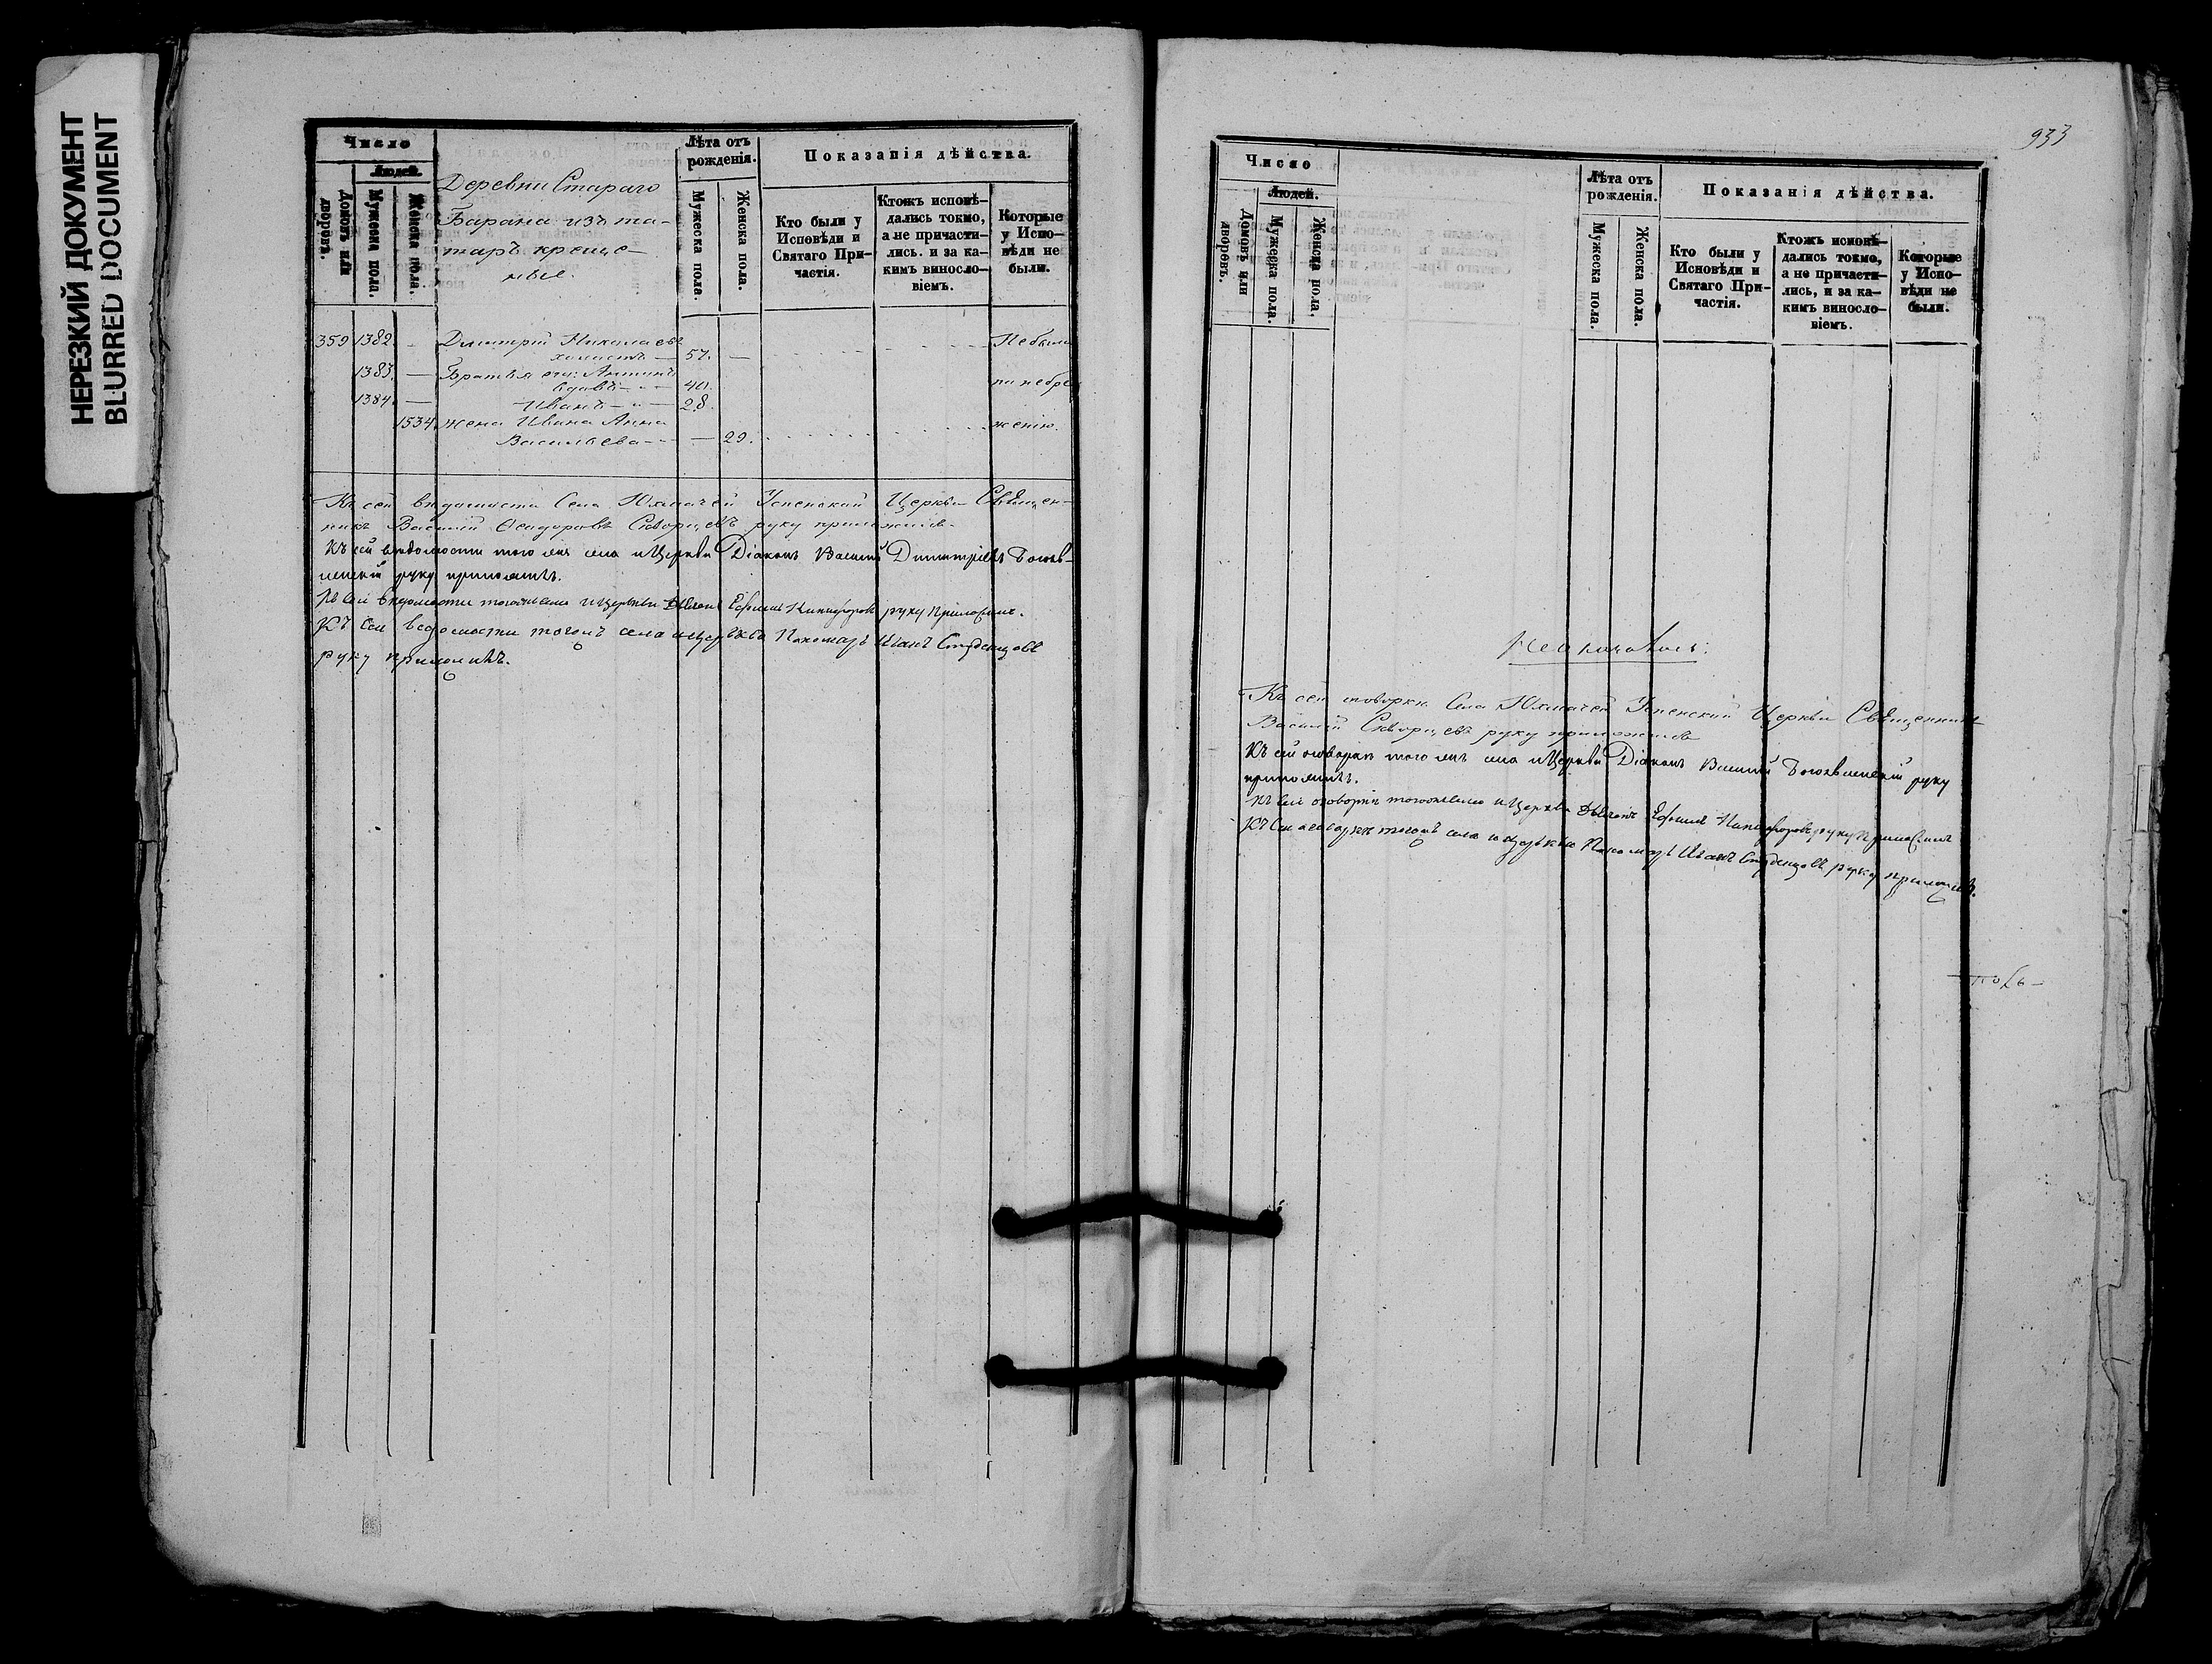 НЕРЕЗКИЙ ДОКУМЕНТ
BLURRED DOCUMENT
Число
Людей.
Домовъ или дворовъ.
Мужеска пола.
Женска пола.
Деревни Стараго
Барана изъ та-
таръ креще-
ные.
Лѣта отъ
рожденія.
Мужеска пола.
Женска пола.
Показанія дѣйства.
Кто были у
Исповѣди и
Святаго При-
частія.
Ктожъ исповѣ-
дались токмо,
а не причасти-
лись. и за ка-
кимъ виносло-
віемъ.
Которые
у Испо-
вѣди не
были.
359 1382. — Димитрій Николаевъ Небыли
холостъ — 57. —
1383. — Братья его: Антипъ
вдовъ — 40. по небре
1384. — Иванъ — 28.
1534. жена Ивана Анна
Васильева — — 29. женію.
Къ сей вѣдомости Села Юхмачей Успенской Церкви Священ-
никъ Василій Ѳеодоровъ Скворцевъ руку приложилъ.
Къ сей вѣдомости того жъ села и Церкви Діаконъ Василій Димитріевъ
руку приложилъ.
Къ сей вѣдомости тогожъ села и церкви Дьячекъ Ефимъ Никифоровъ руку приложилъ.
Къ сей ведомости тогожъ села и церкви Пономарь Иванъ Студенцовъ
руку приложилъ.
933
Число
Людей.
Домовъ или дворовъ.
Мужеска пола.
Женска пола.
Лѣта отъ
рожденія.
Мужеска пола.
Женска пола.
Показанія дѣйства.
Кто были у
Исповѣди и
Святаго При-
частія.
Ктожъ исповѣ-
дались токмо,
а не причасти-
лись, и за ка-
кимъ виносло-
віемъ.
Которые
у Испо-
вѣди не
были.
Къ сей оговоркѣ Села Юхмачей Успенской Церкви Священникъ
Василій Скворцевъ руку приложилъ
Къ сей оговоркѣ того жъ села и Церкви Діаконъ Василій руку
приложилъ.
Къ сей оговоркѣ тогожъ села и Церкви Дьячекъ Ефимъ Никифоровъ руку приложилъ
Къ сей оговоркѣ тогожъ села и церкви Пономарь Иванъ Студенцовъ руку приложилъ.